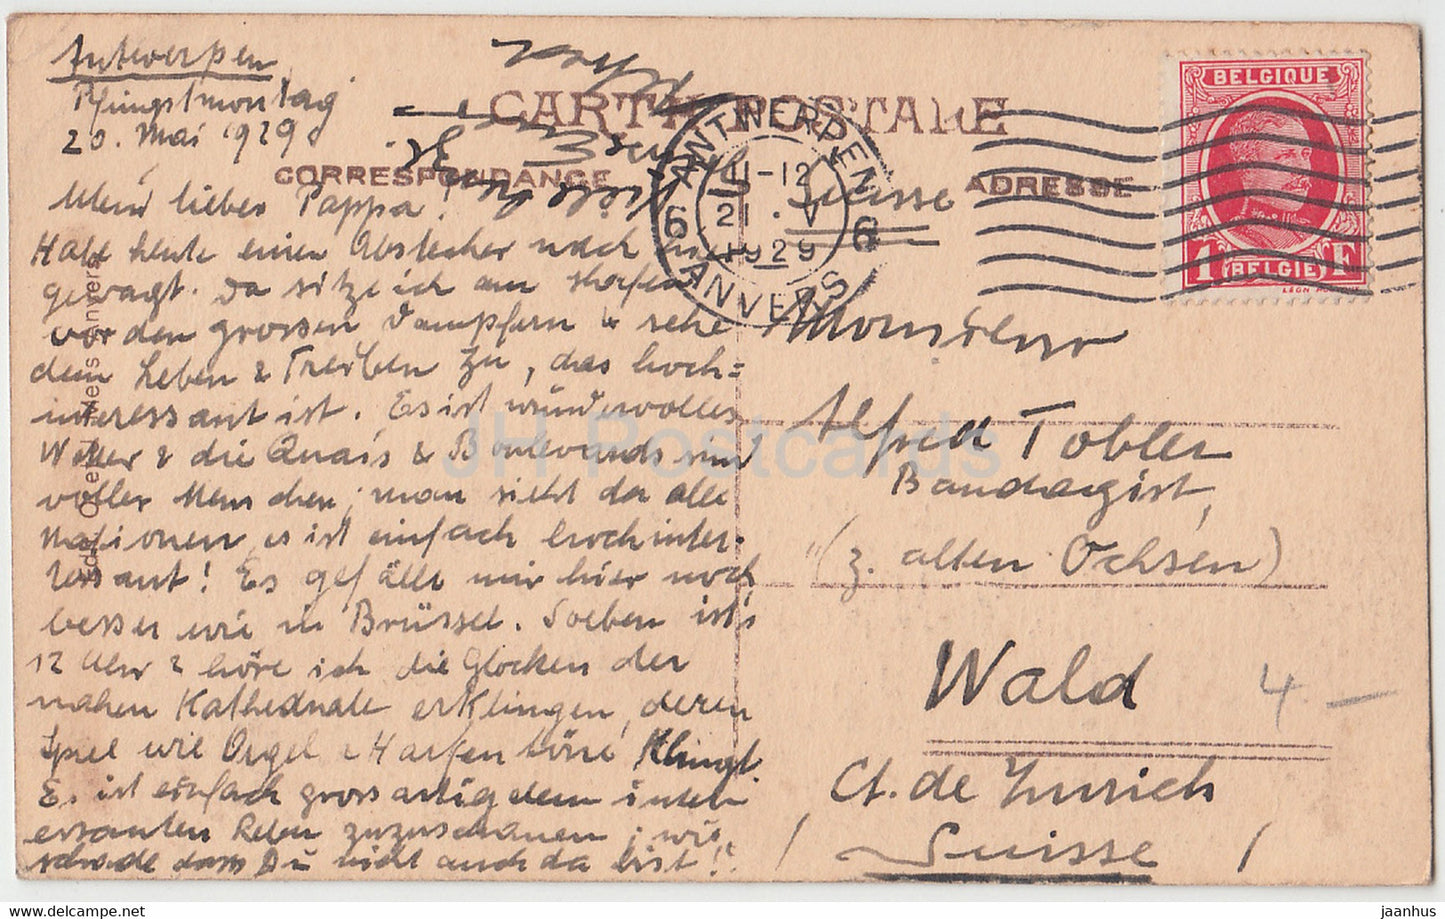 Antwerpen
Pfingstmontag
20. Mai 1929
CARTE POSTALE
CORRESPONDANCE
ADRESSE
Mein lieber Pappa!
Habe heute einen Abstecher nach hier
gewagt. Da sitze ich am Hafen
vor den grossen Dampfern & sehe
dem Leben & Treiben zu, das hoch=
interessant ist. Es ist wundervolles
Wetter & die Quais & Boulevards sind
voller Menschen; man sieht da alle
Nationen, es ist einfach hochinter-
essant! Es gefällt mir hier noch
besser wie in Brüssel. Soeben ist's
12 Uhr & höre ich die Glocken der
nahen Kathedrale erklingen, deren
Spiel wie Orgel & Harfentöne klingt.
Es ist einfach grossartig dem inter-
essanten Leben zuzuschauen; wie
schade dass Du nicht auch da bist!
ANTWERPEN
6 11-12 6
21 . V
1929
ANVERS
BELGIQUE
1 BELGIE F
Suisse
Monsieur
Alfred Tobler
Bandagist,
"(z. alten Ochsen)
Wald
4.-
Ct. de Zurich
Suisse
JH Postcards
www.delcampe.net
jaanhus